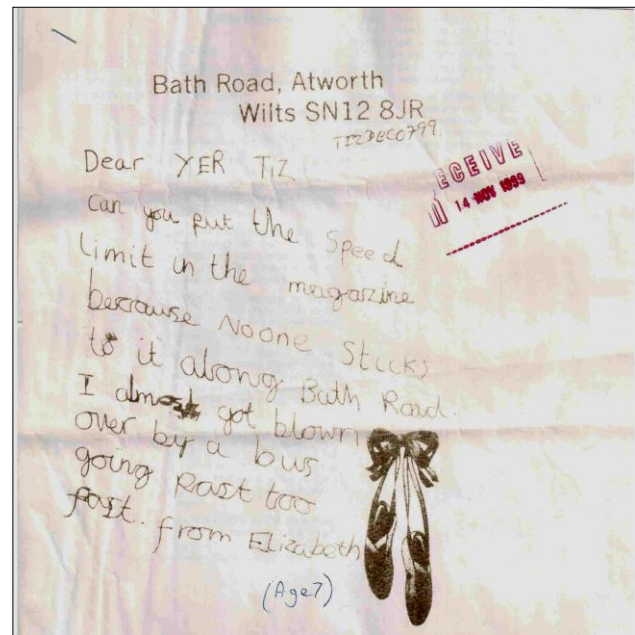 Bath Road, Atworth
Wilts SN12 8JR
TIZDEC0799
Dear YER TIZ
can you put the Speed
limit in the magarzine
becrause NOONE Sticks
to it alrong Bath Road.
I almost got blown
over by a bus
going past too
fast. from Elizabeth
(Age7)
ECEIVE
14 NOV 1999